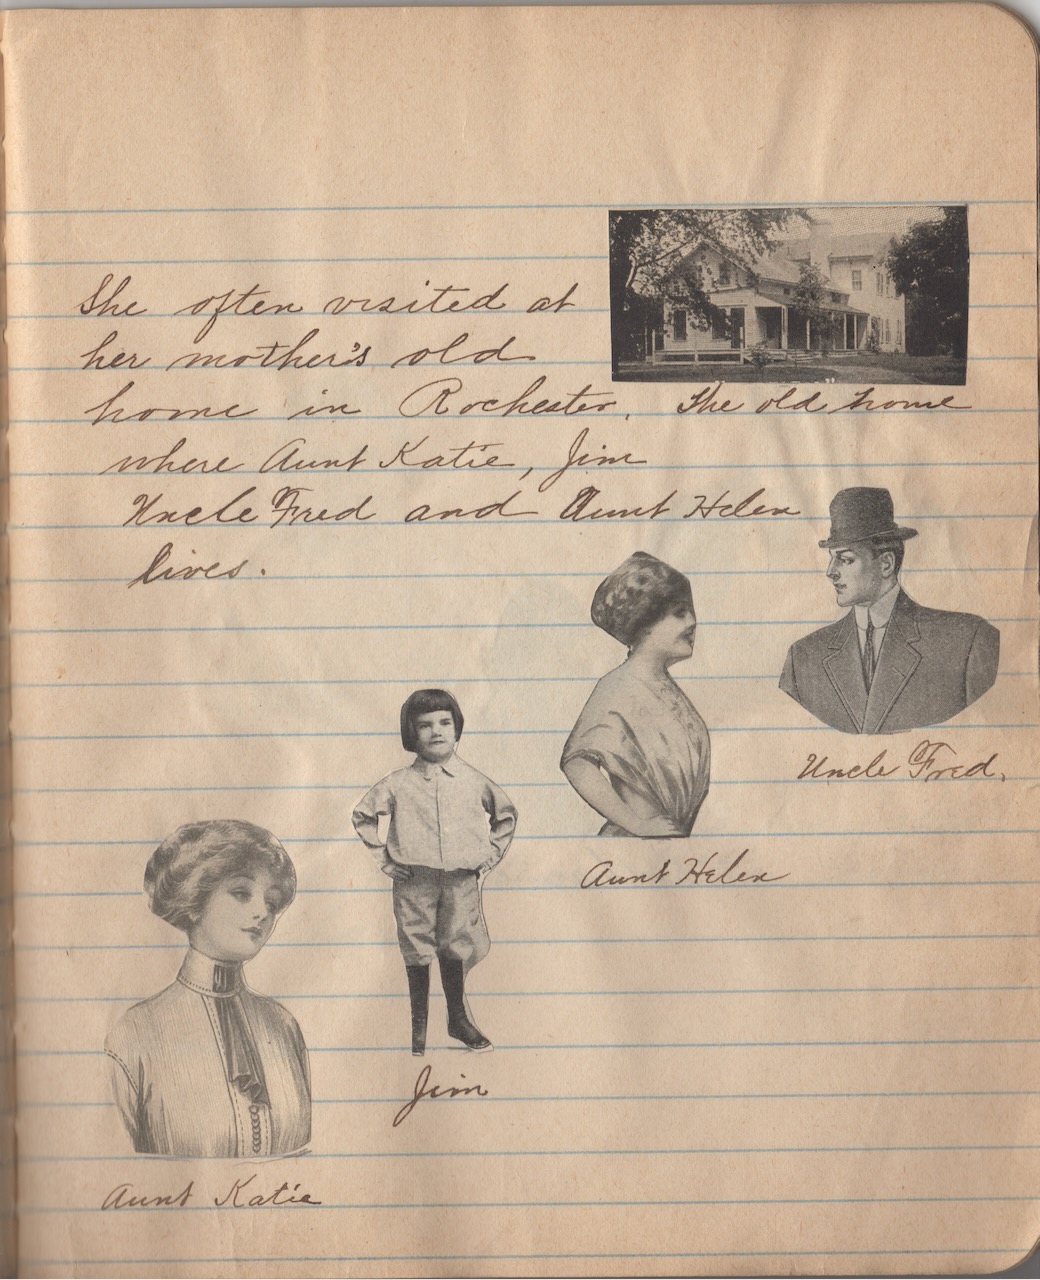 She often visited at
her mother's old
home in Rochester. The old home
where Aunt Katie, Jim
Uncle Fred and Aunt Helen
lives.
Uncle Fred.
Aunt Helen
Jim
Aunt Katie